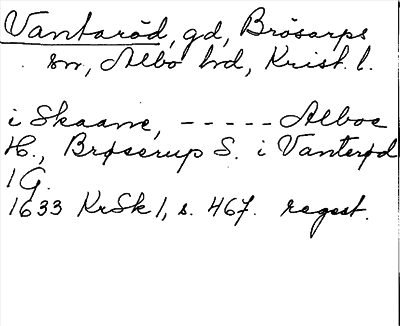 Vantaröd, gd, Brösarps
sn, Albo hd, Krist. l.
i Skaane, ----- Alboe
H., Brøserup S. i Vanterød
1 G.
1633 KrSk 1, s. 467. regest.